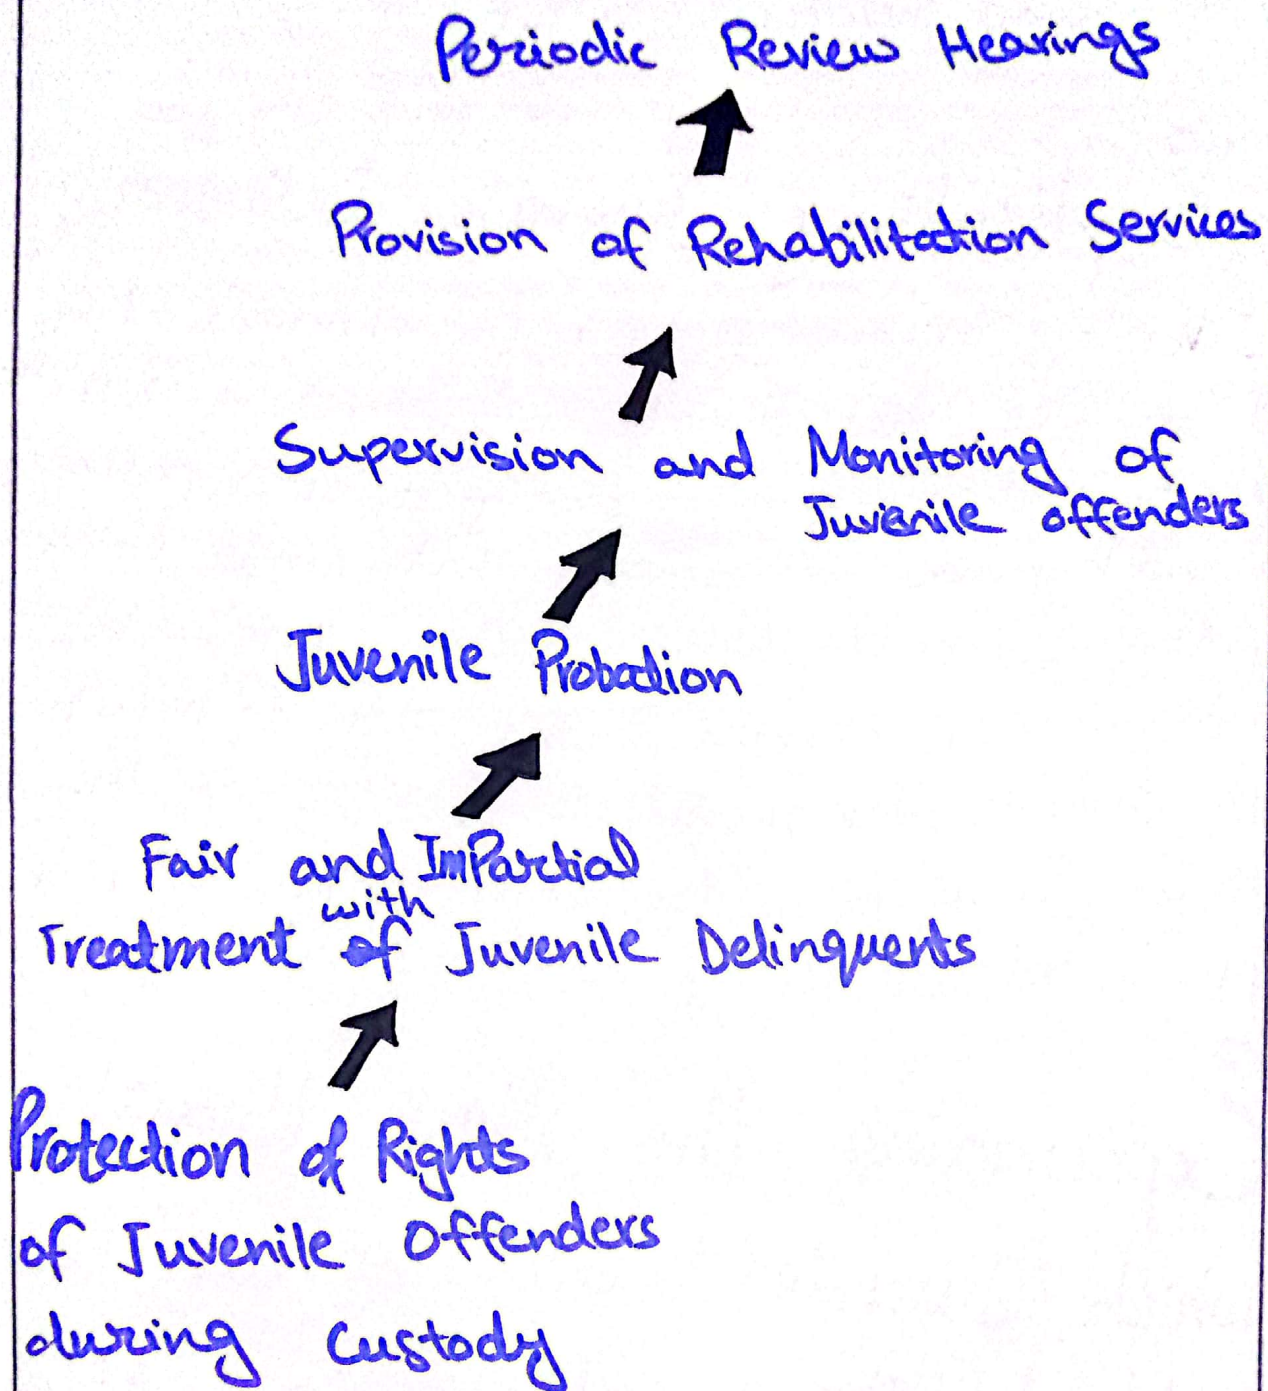 Periodic Review Hearings
Provision of Rehabilitation Services
Supervision and Monitoring of
Juvenile offenders
Juvenile Probation
Fair and ImPartial
with
Treatment of Juvenile Delinquents
Protection of Rights
of Juvenile Offenders
during Custody